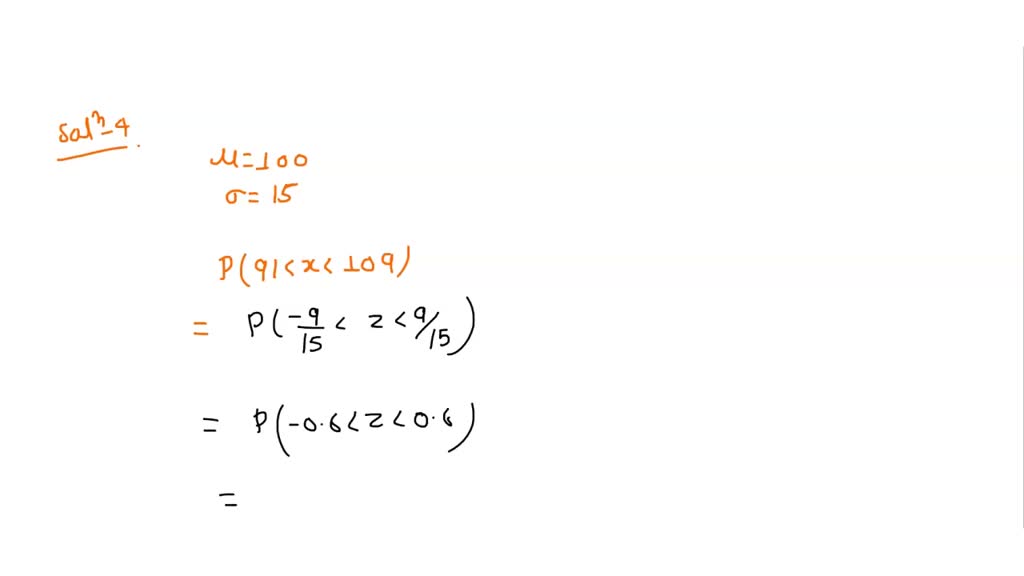 Solⁿ-4.
μ=100
σ= 15
P(91<x<109)
= P(-9/15 < z < 9/15)
= P(-0.6<z<0.6)
=